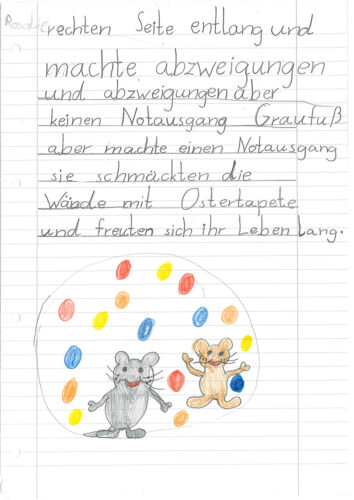 Rosalie
rechten Seite entlang und
machte abzweigungen
und abzweigungen aber
keinen Notausgang Graufuß
aber machte einen Notausgang
sie schmäckten die
Wände mit Ostertapete
und freuten sich ihr Leben lang.